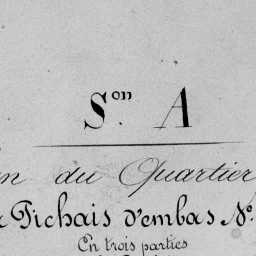 S.on A
du Quartier
Pichais d'embas N.o
En trois parties